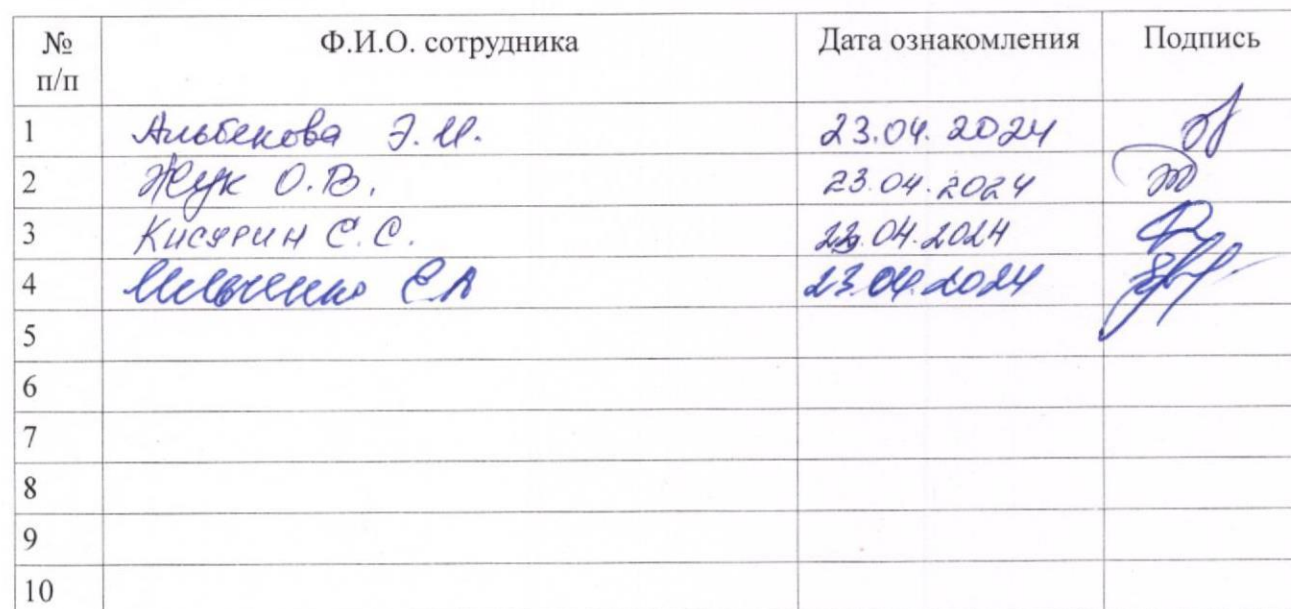 № п/п Ф.И.О. сотрудника Дата ознакомления Подпись
1 Альбекова Э.И. 23.04.2024
2 Жук О.В. 23.04.2024
3 С.С. 04.2024
4 23.04.2024
5
6
7
8
9
10